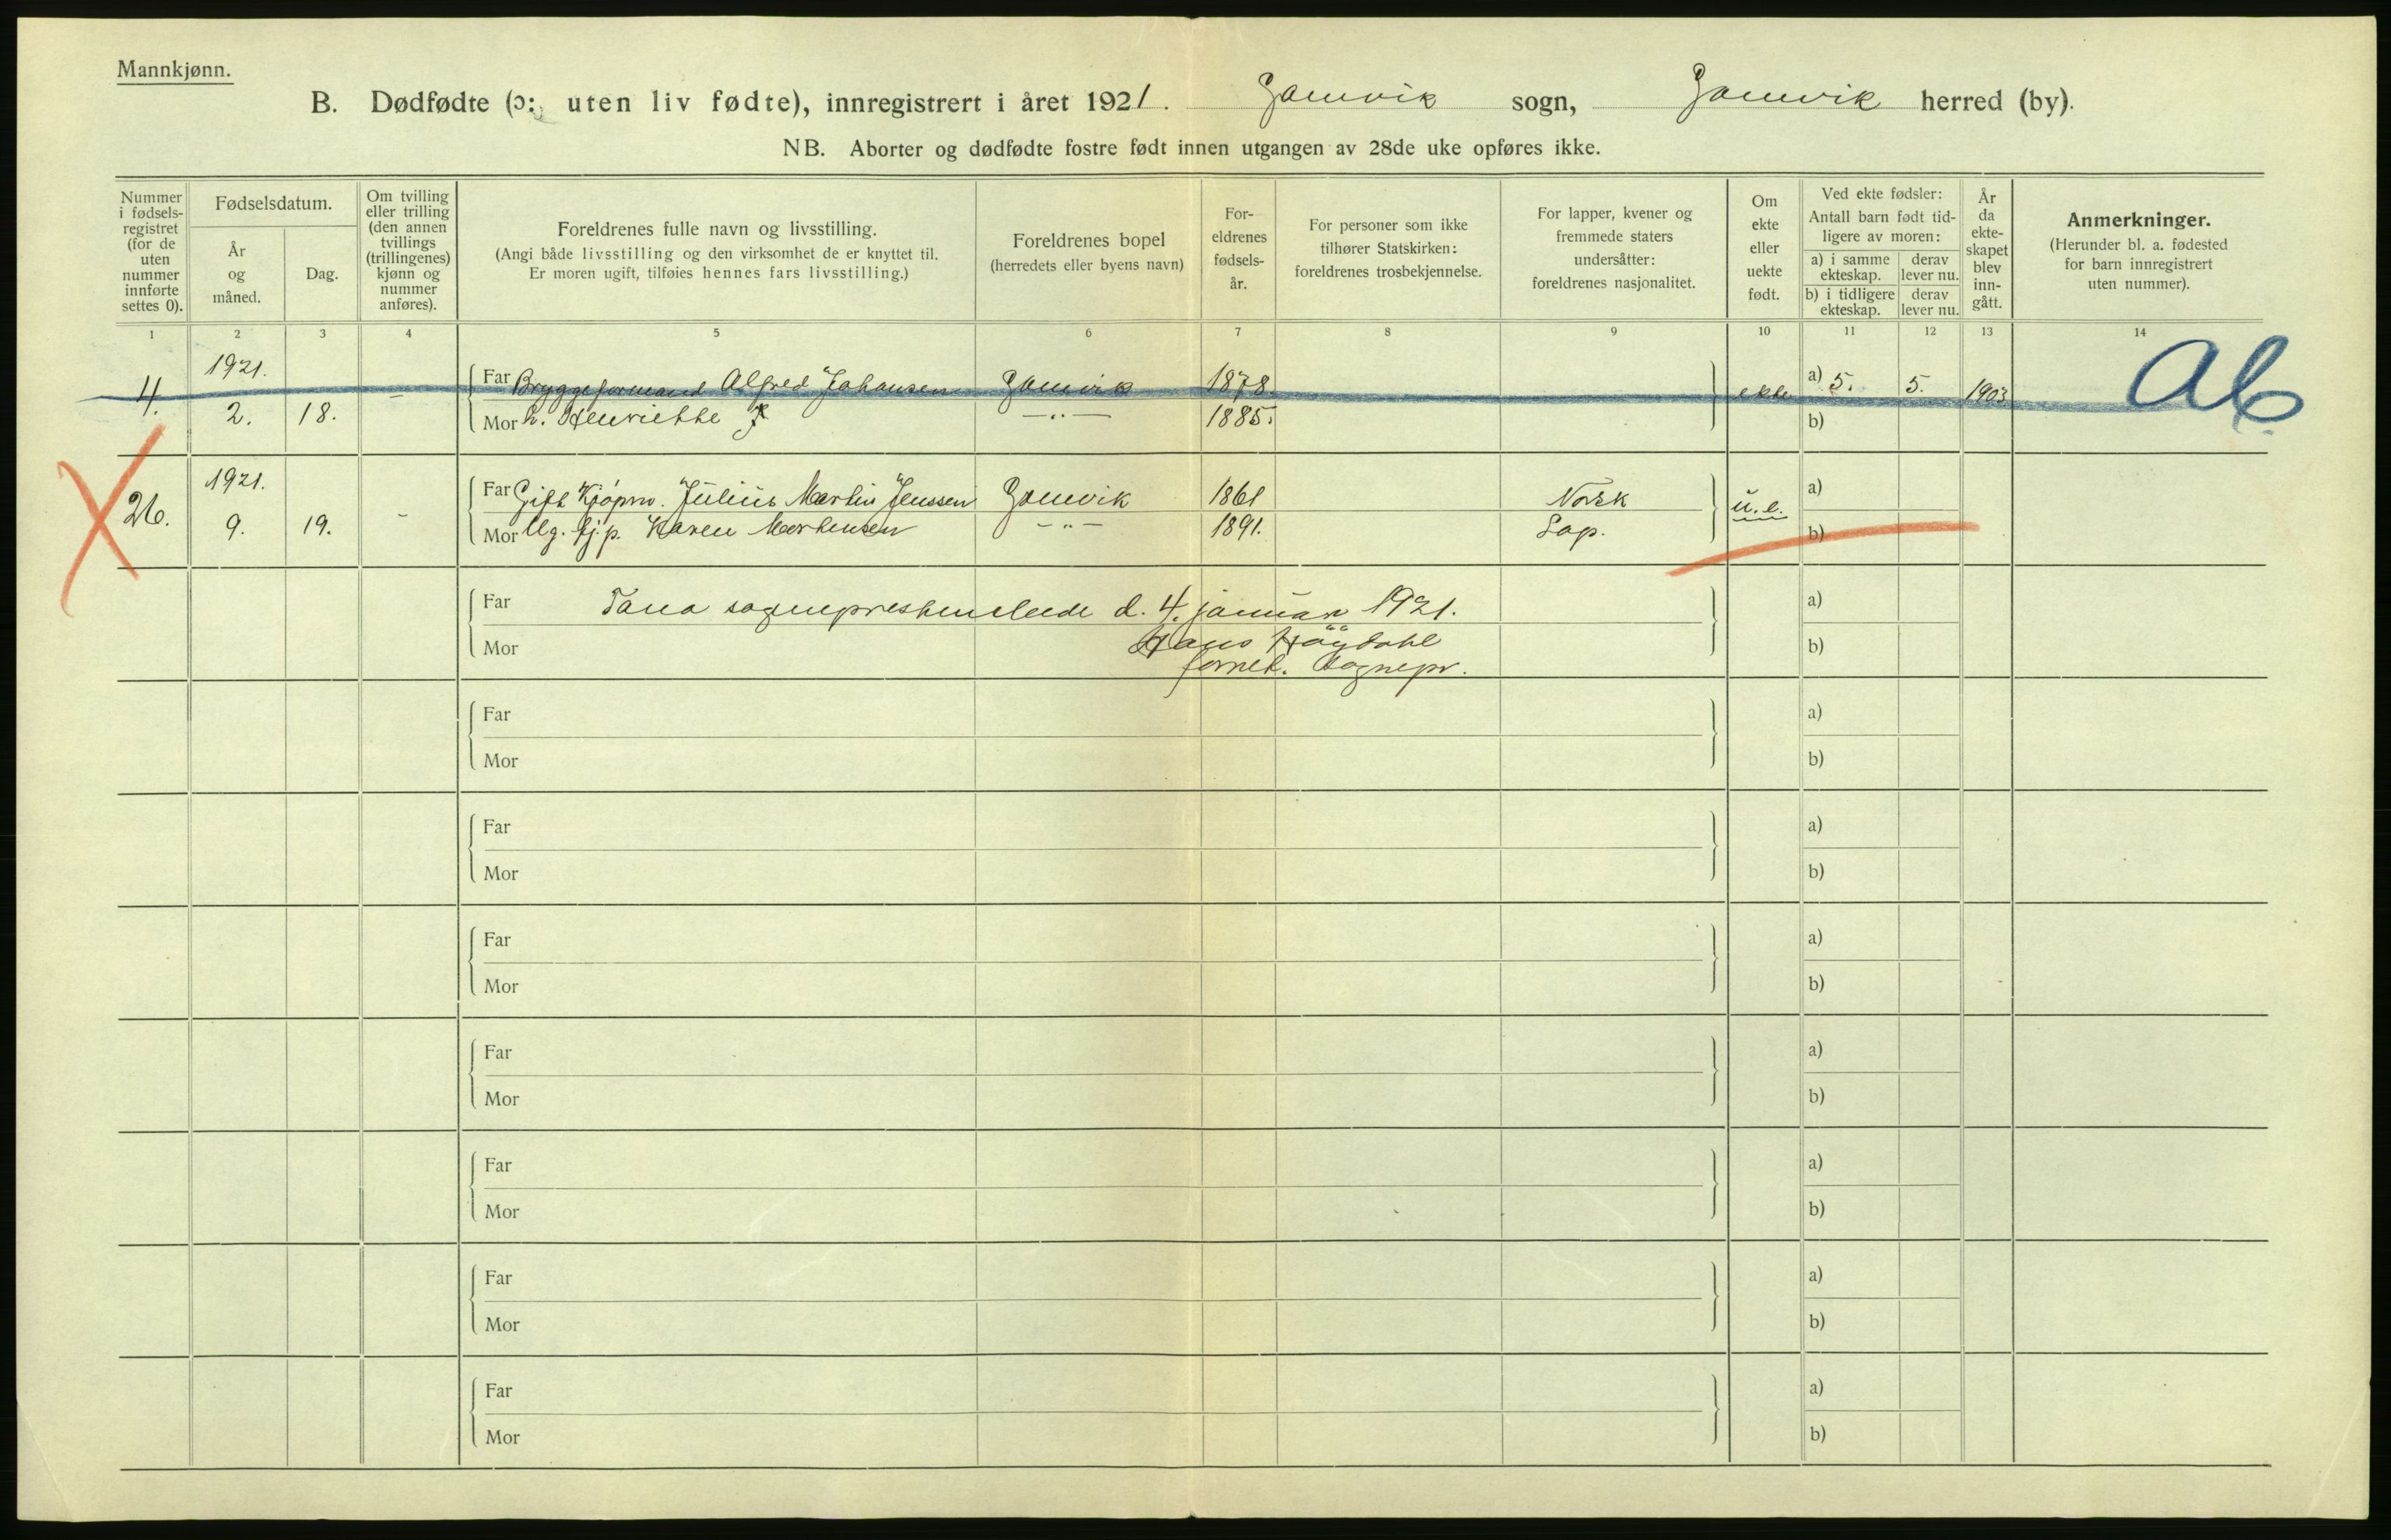 Mannkjønn.
B. Dødfødte (ɔ: uten liv fødte), innregistrert i året 1921. Gamvik sogn, Gamvik herred (by).
NB. Aborter og dødfødte fostre født innen utgangen av 28de uke opføres ikke.
Nummer i fødsels-registret (for de uten nummer innførte settes 0).
Fødselsdatum.
År og måned.
Dag.
Om tvilling eller trilling (den annen tvillings (trillingenes) kjønn og nummer anføres).
Foreldrenes fulle navn og livsstilling.
(Angi både livsstilling og den virksomhet de er knyttet til.
Er moren ugift, tilføies hennes fars livsstilling.)
Foreldrenes bopel
(herredets eller byens navn)
For-eldrenes fødsels-år.
For personer som ikke tilhører Statskirken: foreldrenes trosbekjennelse.
For lapper, kvener og fremmede staters undersåtter: foreldrenes nasjonalitet.
Om ekte eller uekte født.
Ved ekte fødsler:
Antall barn født tid-ligere av moren:
a) i samme ekteskap. derav lever nu.
b) i tidligere ekteskap. derav lever nu.
År da ekte-skapet blev inn-gått.
Anmerkninger.
(Herunder bl. a. fødested for barn innregistrert uten nummer).
1 2 3 4 5 6 7 8 9 10 11 12 13 14
1921.
4. – Far Bryggeformand Alfred Johansen Gamvik 1878. ekte a) 5. 5. 1903 Ab
2. 18. Mor h. Henriette J. –"– 1885. b)
1921.
26. – Far Gift Kjöpm. Julius Martin Jenssen Gamvik 1861 Norsk u.e. a)
9. 19. Mor Ug. tj.p. Karen Mortensen –"– 1891. Lap. b)
Far Tana sogneprestembede d. 4. januar 1921. a)
Mor Hans Höydahl b)
Sognepr.
Far a)
Mor b)
Far a)
Mor b)
Far a)
Mor b)
Far a)
Mor b)
Far a)
Mor b)
Far a)
Mor b)
Far a)
Mor b)